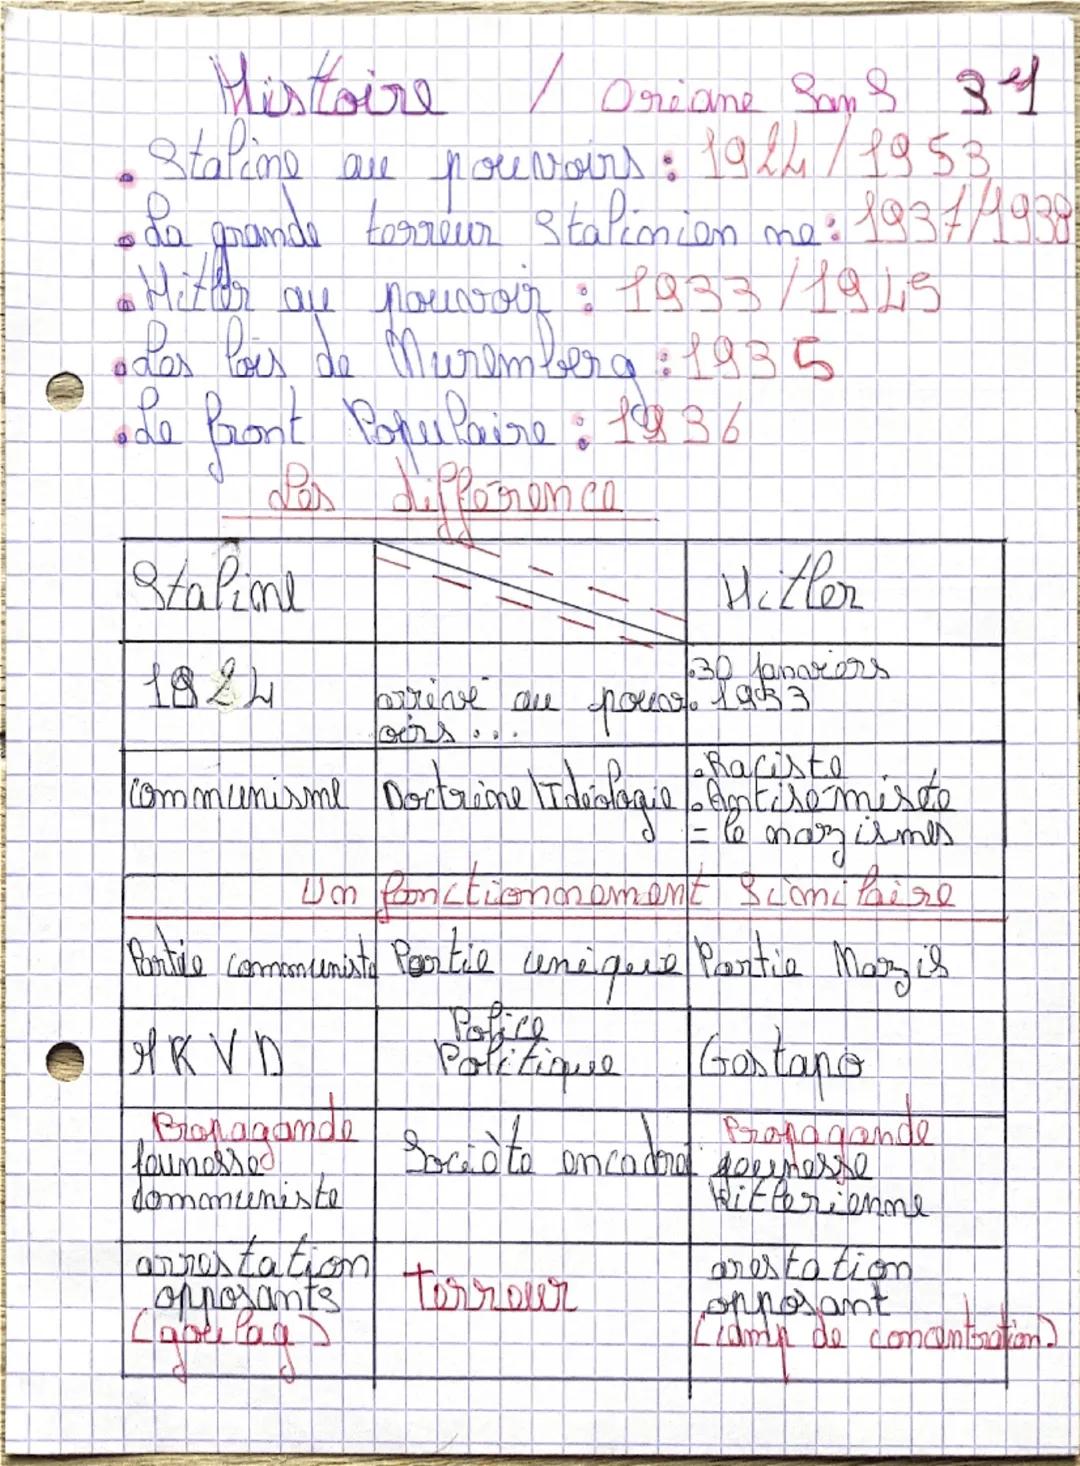 Histoire / Oriane Sam S 3e1
• Staline au pouvoirs : 1924/1953
• La grande terreur Stalinien ne : 1937/1938
• Hitler au pouvoir : 1933/1945
• Les lois de Nuremberg : 1935
• Le front Populaire : 1936
Les différence
Staline Hitler
1924 arrivé au pouv oirs... • 30 janviers • 1933
communisme Doctrine \ Idéologie • Raciste
• Antisémiste
= le nazismes
Un fonctionnement Similaire
Partie communiste Partie unique Partie Nazis
NKVD Police Politique Gestapo
Propagande jeunesse communiste Société encadré Propagande jeunesse Hitlerienne
arrestation opposants (goulag) terreur arestation opposant (camp de concentration)